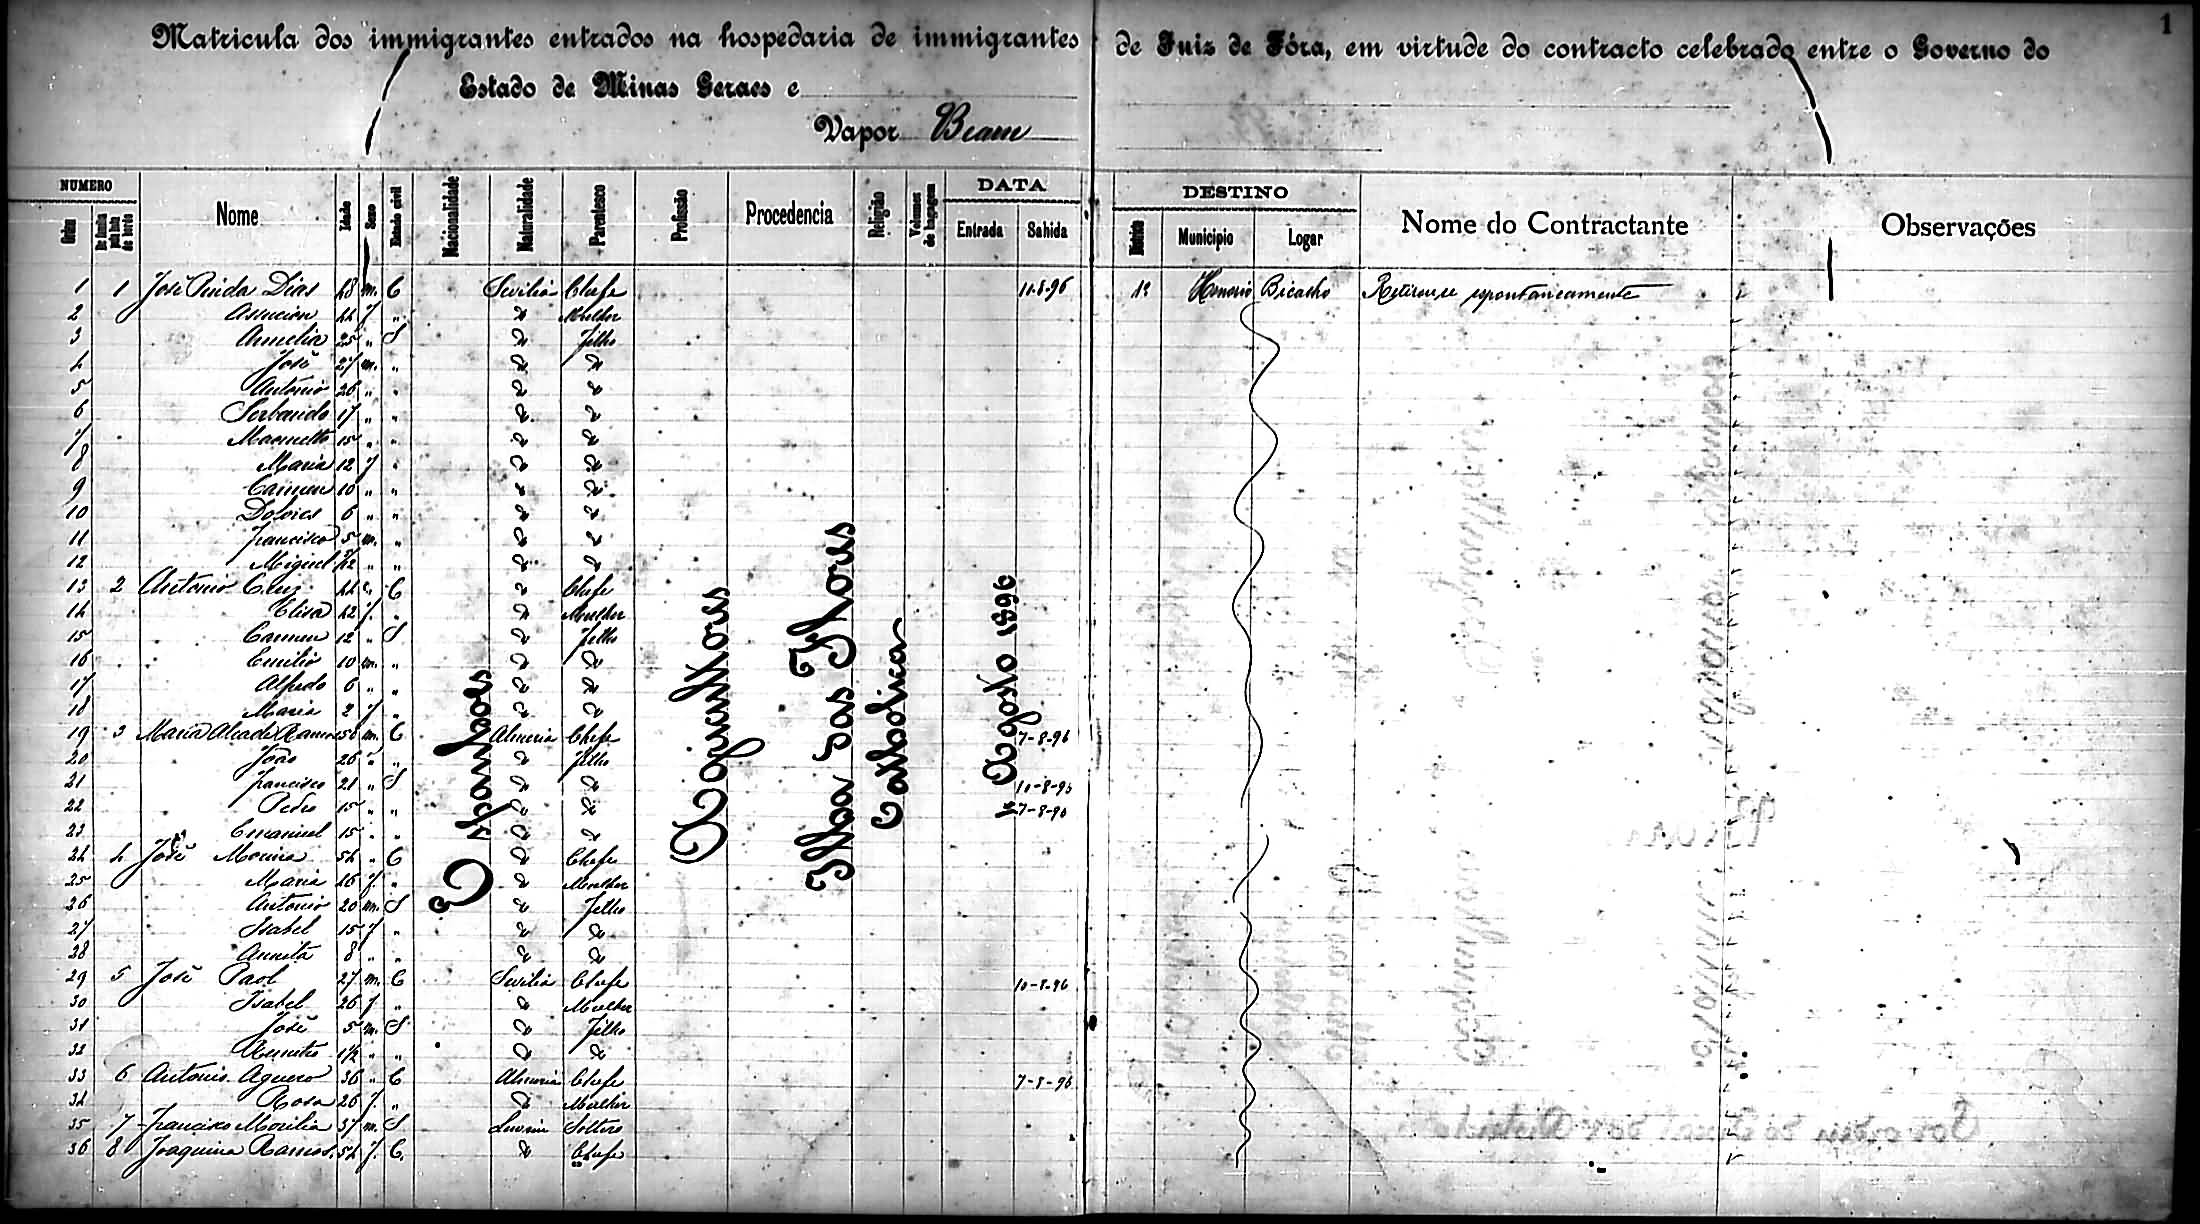 1
Matricula dos immigrantes entrados na hospedaria de immigrantes de Juiz de Fóra, em virtude do contracto celebrado entre o Governo do
Estado de Minas Geraes e
Vapor Bearn
NUMERO DATA DESTINO
Ordem Nome Idade Sexo Estado civil Nacionalidade Naturalidade Parentesco Profissão Procedencia Religião Volumes de bagagem Entrada Sahida Municipio Logar Nome do Contractante Observações
1 1 José Dias 48 m. C Sevilia Chefe 11-8-96 Bicalho Retirou-se espontaneamente
2 Assucion 44 f " " Mulher
3 Amelia 25 " S " Filho
4 José 27 m. " " "
5 Antonio 26 " " " "
6 Serbando 17 " " " "
7 15 " " " "
8 Maria 12 f " " "
9 Carmen 10 " " " "
10 Dolores 6 " " " "
11 Francisco 5 m. " " "
12 Miguel " " " "
13 2 Antonio Cruz 44 " C " Chefe
14 Elisa 42 f. " " Mulher
15 Carmen 12 " S " Filho
16 Emilio 10 m. " " "
17 Alfredo 6 " " " "
18 Maria 2 f " " "
19 3 Maria 56 m. C Almeria Chefe 7-8-96
20 João 26 " " " Filho
21 Francisco 21 " S " " 10-8-96
22 Pedro 15 " " " " 7-8-96
23 Emanuel 15 " " " "
24 4 José Molina 54 " C " Chefe
25 Maria 46 f. " " Mulher
26 Antonio 20 m. S " Filho
27 Isabel 15 f " " "
28 Annita 8 " " " "
29 5 José Paol 27 m. C Sevilia Chefe 10-8-96
30 Isabel 26 f " " Mulher
31 José 5 m. S " Filho
32 1½ " " " "
33 6 Antonio Aguero 36 " C Almeria Chefe 7-8-96
34 Rosa 26 f. " " Mulher
35 7 Francisco 37 m. S Solteiro
36 8 Joaquina Ramos 54 f. C. " Chefe
Espanhoes
Agricultores
Ilha das Flores
Catholica
4 Agosto 1896